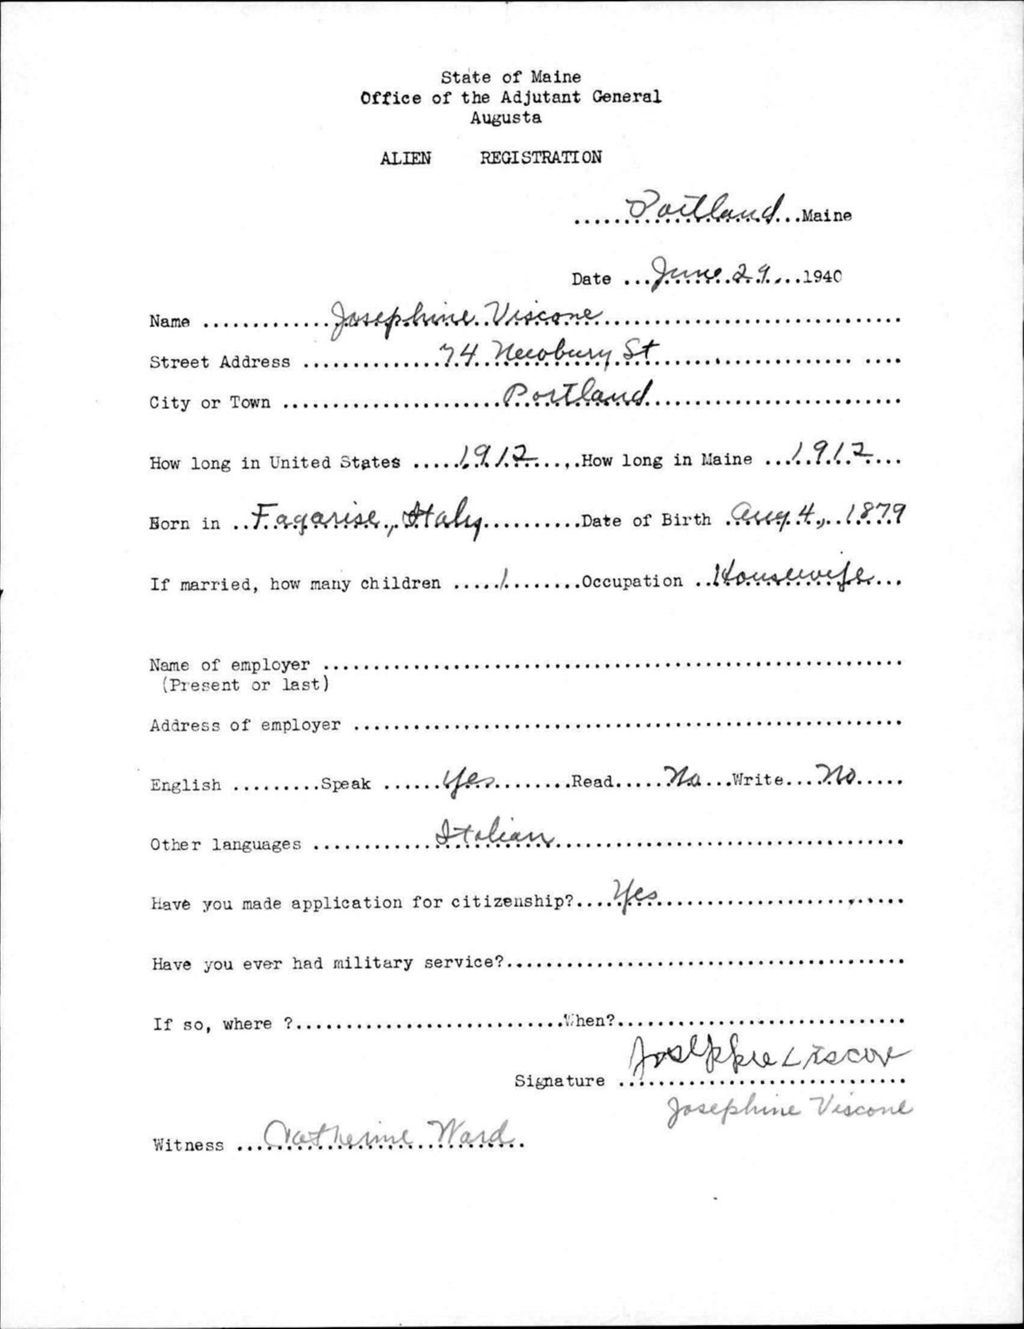 State of Maine
Office of the Adjutant General
Augusta
ALIEN REGISTRATION
.....Portland...Maine
Date ...June 29....1940
Name .............Josephine Viscone..............................
Street Address ..............74 Newbury St..............................
City or Town ......................Portland..............................
How long in United States .....1912......How long in Maine ...1912....
Born in ..Fagarise, Italy...........Date of Birth .Aug 4, 1879
If married, how many children .....1........Occupation ..Housewife...
Name of employer ..........................................................
(Present or last)
Address of employer .......................................................
English .........Speak ......Yes.........Read.....No...Write...No.....
Other languages ............Italian...................................
Have you made application for citizenship?....Yes.........................
Have you ever had military service?........................................
If so, where ?...........................When?.............................
Signature .............................
Josephine Viscone
Witness ...Catherine Ward..